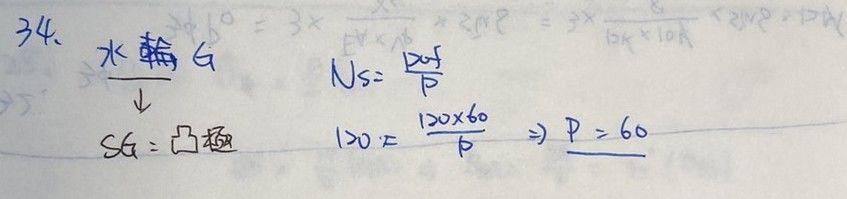 34.
水輪 G
↓
SG = 凸極
Ns = 120f/P
120 = 120×60/P ⇒ P = 60